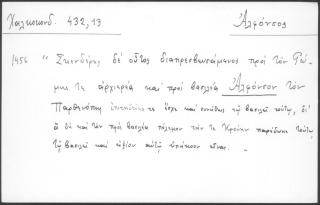 Χαλκοκονδ. 432,13
Ἀλφόνσος
1456 " Σκενδέρης δὲ οὗτος διαπρεσβευσάμενος πρός τε Ῥώ-
μης τε ἀρχιερέα καὶ πρὸς βασιλέα Ἀλφόνσον τὸν
Παρθενόπης ἐπιτηδείως τε ἔσχε καὶ συνήθως τῷ βασιλεῖ τούτῳ, δι'
ἃ δὴ καὶ τὸν πρὸς βασιλέα πόλεμον τήν τε Κροίην παρέδωκε τούτῳ
τῷ βασιλεῖ καὶ ἠξίου αὐτῷ ὑπήκοον εἶναι. -